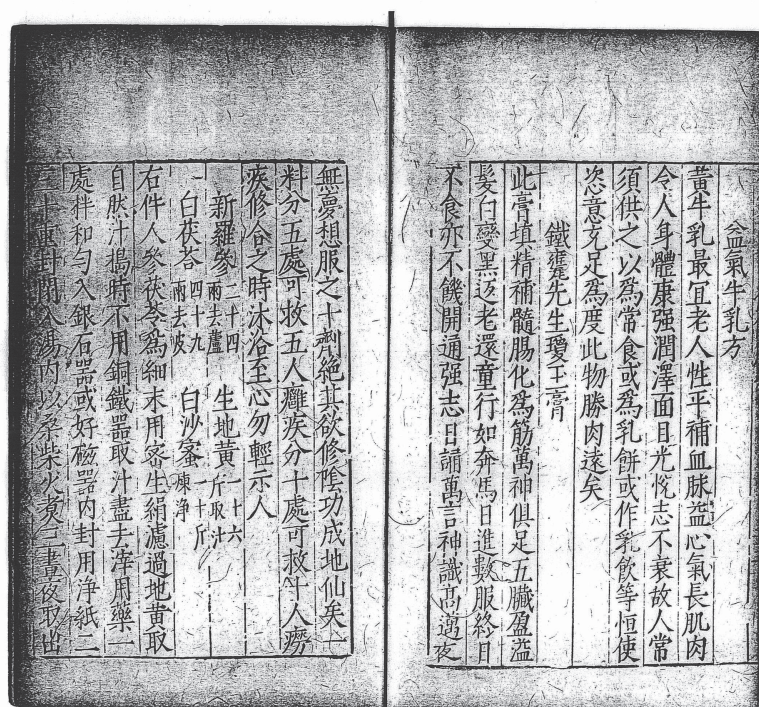 益氣牛乳方
黃牛乳最宜老人性平補血脉益心氣長肌肉
令人身體康强潤澤面目光悅志不衰故人常
須供之以爲常食或爲乳餅或作乳飲等恒使
恣意充足爲度此物勝肉遠矣
鐵甕先生瓊玉膏
此膏填精補髓腸化爲筋萬神俱足五臟盈溢
髮白變黑返老還童行如奔馬日進數服終日
不食亦不饑開通强志日誦萬言神識高邁夜
無夢想服之十劑絶其欲修陰功成地仙矣一
料分五處可救五人癰疾分十處可救十人癆
疾修合之時沐浴至心勿輕示人
新羅參二十四兩去蘆 生地黃一十六斤取汁
白茯苓四十九兩去皮 白沙蜜一十斤煉淨
右件人參茯苓爲細末用宻生絹濾過地黃取
自然汁搗時不用銅鐵器取汁盡去滓用藥一
處拌和勻入銀石器或好磁器内封用淨紙二
三十重封閉入湯内以桑柴火煮三晝夜取出